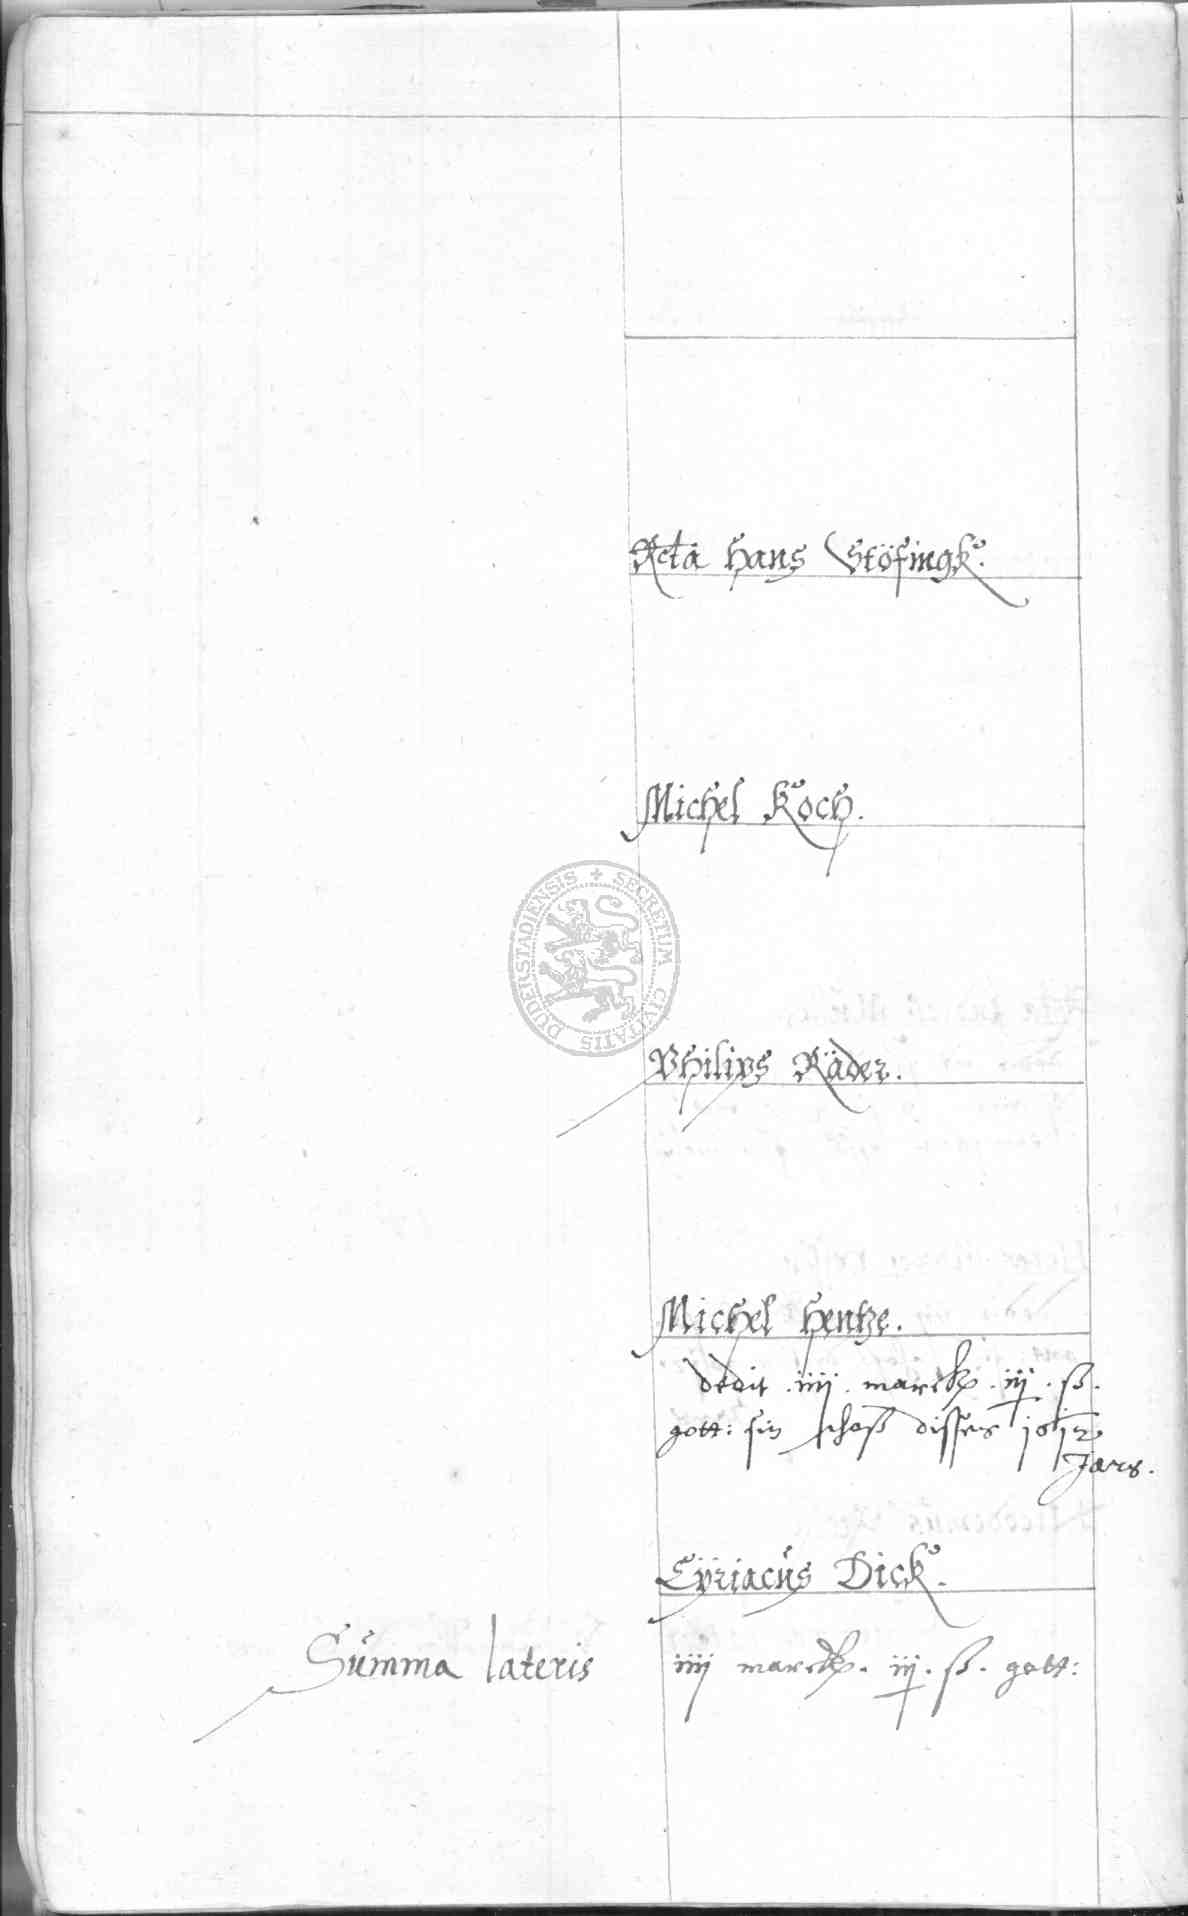 Acta Hans Stöfingk.
Michel Koch.
DUDERSTADIENSIS + SECRETUM CIVITATIS
Philips Räder.
Michel Hentze.
dedit . iiij . marck . iij . ß .
gott: sin schoß disses 1612
Jars .
Cyriacus Dick.
Summa lateris iiij marck . iij . ß . gott: